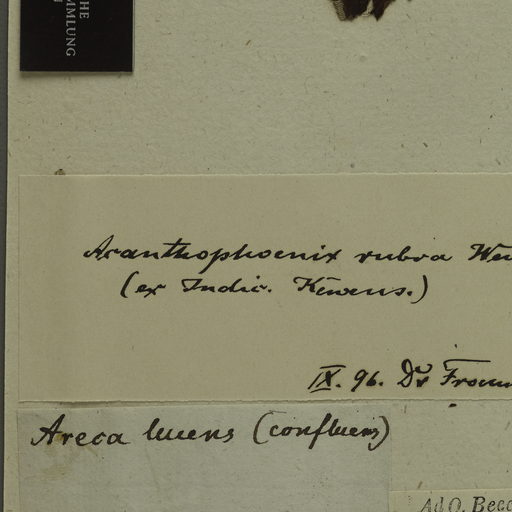 HE
MMLUNG
Acanthophoenix rubra We
(ex Indic. Kewens.)
IX. 96. Dr From
Areca lucens (confluens)
Ad O. Becc